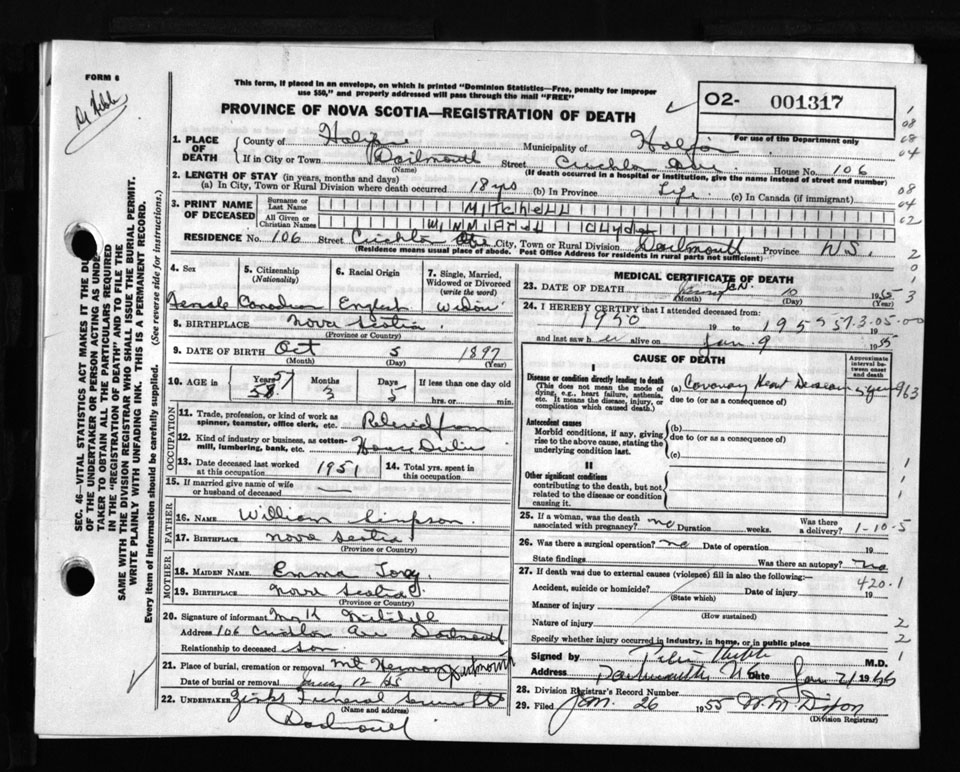 FORM 6
This form, if placed in an envelope, on which is printed "Dominion Statistics—Free, penalty for improper
use $50," and properly addressed will pass through the mail "FREE"
PROVINCE OF NOVA SCOTIA—REGISTRATION OF DEATH
O2- 001317
For use of the Department only
1. PLACE OF DEATH
County of Halifax Municipality of Halifax
If in City or Town Dartmouth Street House No. 106
(Name) (If death occurred in a hospital or institution, give the name instead of street and number)
2. LENGTH OF STAY (in years, months and days)
(a) In City, Town or Rural Division where death occurred 18 yrs (b) In Province Life (c) In Canada (if immigrant)
3. PRINT NAME OF DECEASED
Surname or Last Name MITCHELL
All Given or Christian Names
RESIDENCE No. 106 Street City, Town or Rural Division Dartmouth Province N.S.
(Residence means usual place of abode. Post Office Address for residents in rural parts not sufficient)
4. Sex 5. Citizenship (Nationality) 6. Racial Origin 7. Single, Married, Widowed or Divorced (write the word)
Female Canadian English Widow
8. BIRTHPLACE Nova Scotia
(Province or Country)
9. DATE OF BIRTH Oct 5 1897
(Month) (Day) (Year)
10. AGE in Years Months Days If less than one day old
58 57 3 5 hrs. or min.
OCCUPATION
11. Trade, profession, or kind of work as spinner, teamster, office clerk, etc. Retired from
12. Kind of industry or business, as cotton-mill, lumbering, bank, etc. House Duties
13. Date deceased last worked at this occupation 1951 14. Total yrs. spent in this occupation
15. If married give name of wife or husband of deceased —
FATHER
16. NAME William Simpson
17. BIRTHPLACE Nova Scotia
(Province or Country)
MOTHER
18. MAIDEN NAME Emma
19. BIRTHPLACE Nova Scotia
(Province or Country)
20. Signature of informant Mitchell
Address 106 Dartmouth
Relationship to deceased son
21. Place of burial, cremation or removal Mt Hermon Dartmouth
Date of burial or removal 12 55
22. UNDERTAKER Zinks Funeral
(Name and address)
Dartmouth
MEDICAL CERTIFICATE OF DEATH
23. DATE OF DEATH JAN. 10 1955
(Month) (Day) (Year)
24. I HEREBY CERTIFY that I attended deceased from:
1950 19 to 1955
and last saw her alive on Jan. 9 1955
CAUSE OF DEATH
Approximate interval between onset and death
I
Disease or condition directly leading to death
(This does not mean the mode of dying, e.g., heart failure, asthenia, etc. It means the disease, injury, or complication which caused death.)
(a) Coronary Heart Disease
due to (or as a consequence of)
Antecedent causes
Morbid conditions, if any, giving rise to the above cause, stating the underlying condition last.
(b)
due to (or as a consequence of)
(c)
II
Other significant conditions
contributing to the death, but not related to the disease or condition causing it.
25. If a woman, was the death associated with pregnancy? no Duration weeks. Was there a delivery?
1-10-5
26. Was there a surgical operation? no Date of operation 19
State findings Was there an autopsy? no
27. If death was due to external causes (violence) fill in also the following:—
420.1
Accident, suicide or homicide? Date of injury 19
(State which)
Manner of injury
(How sustained)
Nature of injury
Specify whether injury occurred in industry, in home, or in public place
Signed by M.D.
Address Dartmouth N.S. Date Jan 21 1955
28. Division Registrar's Record Number
29. Filed Jan. 26 1955 W. M. Dixon
(Division Registrar)
SEC. 46—VITAL STATISTICS ACT MAKES IT THE DU
OF THE UNDERTAKER OR PERSON ACTING AS UNDE
TAKER TO OBTAIN ALL THE PARTICULARS REQUIRED
IN THE "REGISTRATION OF DEATH" AND TO FILE THE
SAME WITH THE DIVISION REGISTRAR WHO SHALL ISSUE THE BURIAL PERMIT.
WRITE PLAINLY WITH UNFADING INK. THIS IS A PERMANENT RECORD.
Every item of information should be carefully supplied. (See reverse side for instructions.)